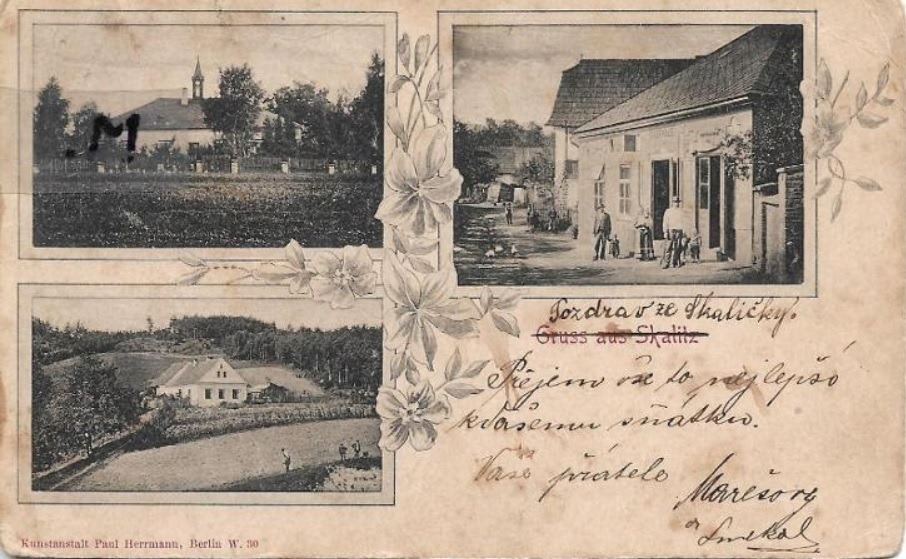 .M
Pozdrav ze Skaličky.
Gruss aus Skalitz
Přejem vše to nejlepšó
kvašemu sňatku.
Vaši přátele
Marešovy
Smekal
Kunstanstalt Paul Herrmann, Berlin W. 30